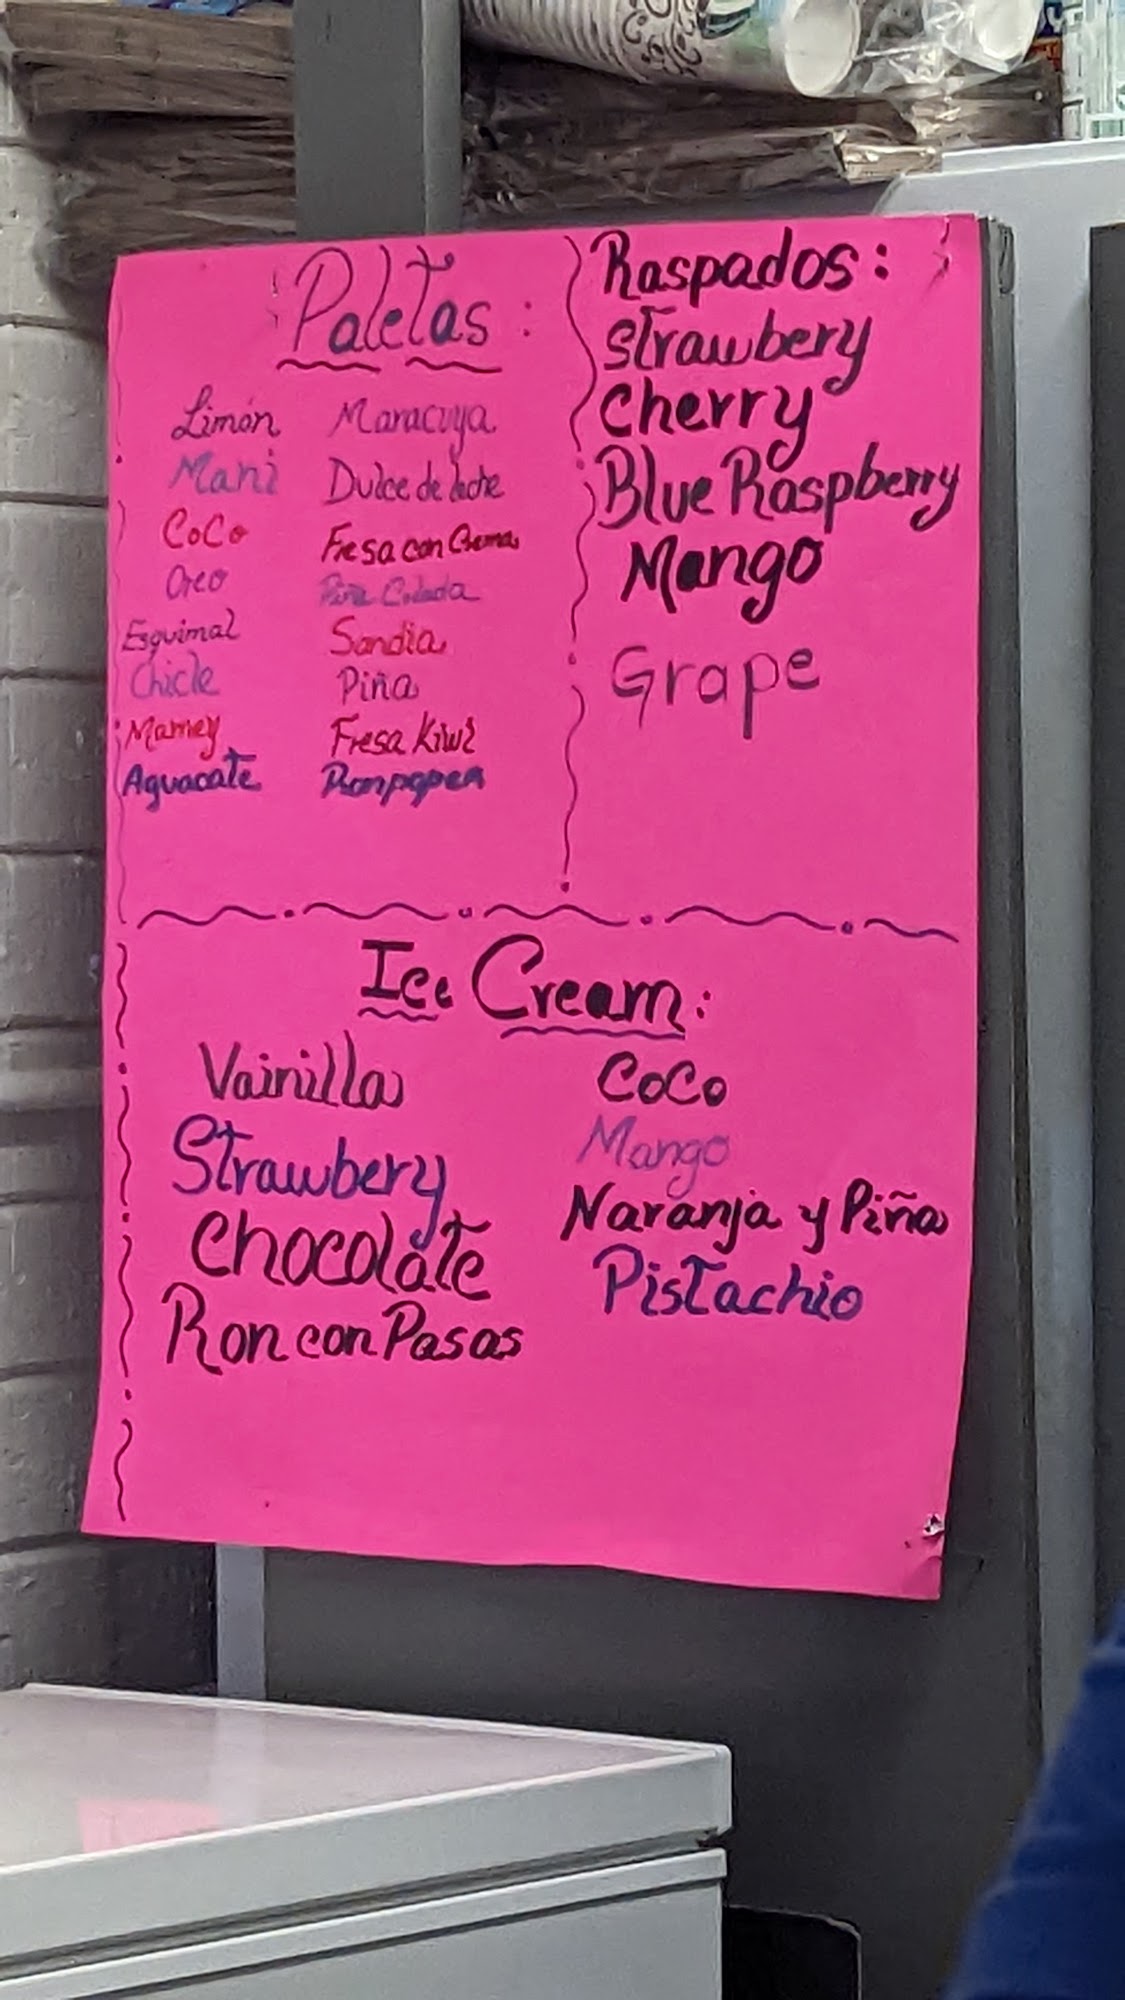 Paletas:
Limón
Mani
CoCo
Oreo
Esquimal
Chicle
Mamey
Aguacate
Maracuya
Dulce de leche
Fresa con Crema
Piña Colada
Sandia
Piña
Fresa Kiwi
Ronpopea
Raspados:
Strawbery
Cherry
Blue Raspberry
Mango
Grape
Ice Cream:
Vainilla
Strawbery
Chocolate
Ron con Pasas
CoCo
Mango
Naranja y Piña
Pistachio